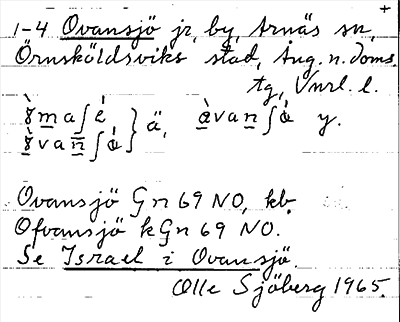 1-4 Ovansjö jr, by, Arnäs sn,
Örnsköldsviks stad, Ång. n. doms.
tg, Vnrl. l.
Ovansjö Gn 69 NO, kb.
Ofvansjö kGn 69 NO.
Se Israel i Ovansjö.
Olle Sjöberg 1965.